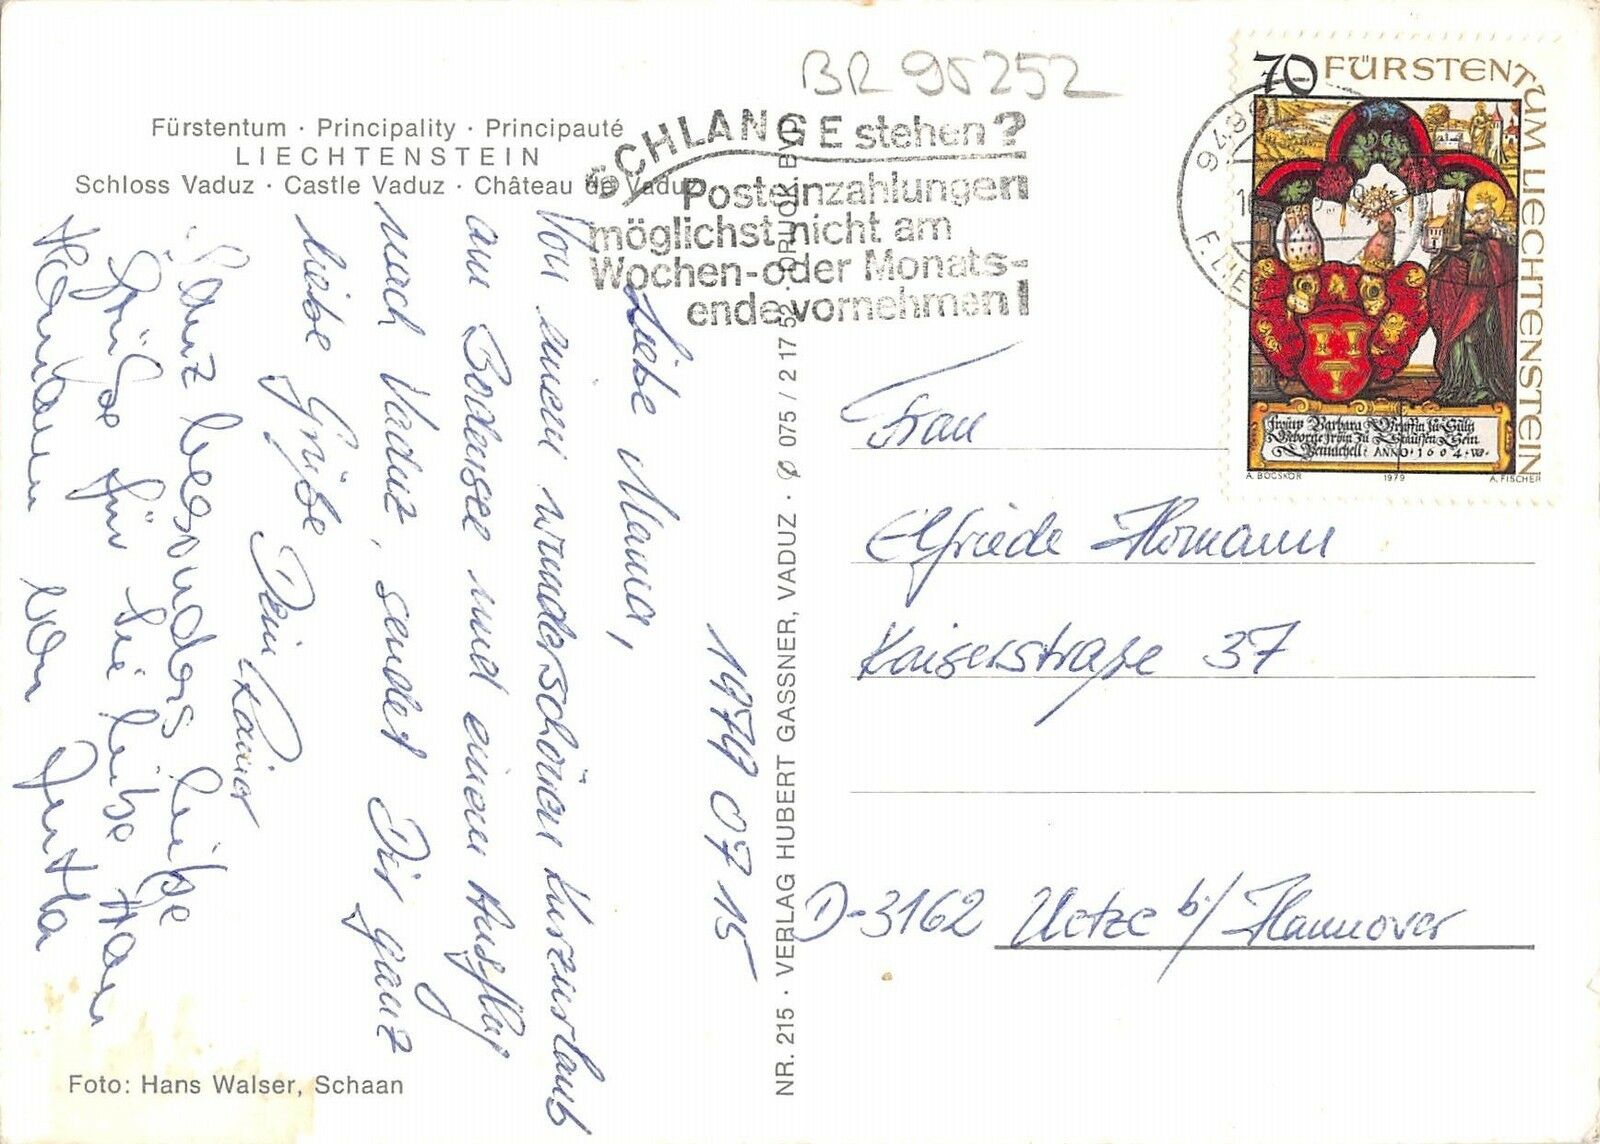 BR 95252
Fürstentum · Principality · Principauté
LIECHTENSTEIN
Schloss Vaduz · Castle Vaduz · Château de Vaduz
SCHLANGE stehen?
Posteinzahlungen
möglichst nicht am
Wochen-oder Monats-
ende vornehmen!
1979 07 15
Liebe Mama,
Von einem wunderschönen Kurzurlaub
am Bodensee und einem Ausflug
nach Vaduz, sendet Dir ganz
liebe Grüße
Dein Rainer
Ganz besonders liebe
Grüße für Sie liebe Frau
Homann von Jutta
Foto: Hans Walser, Schaan
NR. 215 · VERLAG HUBERT GASSNER, VADUZ · Ø 075 / 2 17 52 · DRUCK BVD
70 FÜRSTENTUM LIECHTENSTEIN
ANNO · 1604
A. BÖCSKÖR 1979 A. FISCHER
948
F. LIE
Frau
Elfriede Homann
Kaiserstraße 37
D-3162 Uetze b/ Hannover